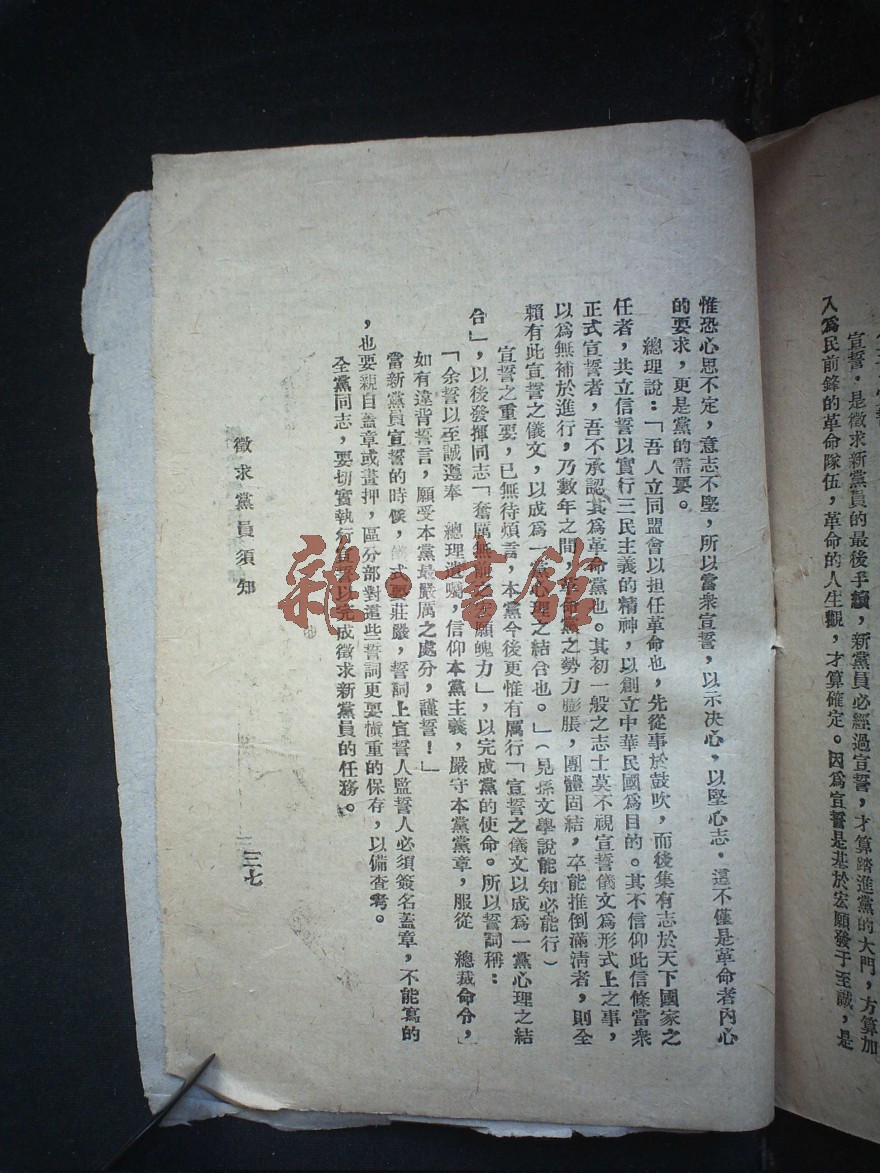 宣誓．是徵求新黨員的最後手續，新黨員必經過宣誓，才算踏進黨的大門，方算加
入為民前鋒的革命隊伍，革命的人生觀，才算確定。因為宣誓是基於宏願發于至誠，是
惟恐心思不定，意志不堅，所以當衆宣誓，以示決心，以堅心志．這不僅是革命者內心
的要求，更是黨的需要。
總理說：「吾人立同盟會以担任革命也，先從事於鼓吹，而後集有志於天下國家之
任者，共立信誓以實行三民主義的精神，以創立中華民國爲目的。其不信仰此信條當衆
正式宣誓者，吾不承認其爲革命黨也。其初一般之志士莫不視宣誓儀文爲形式上之事，
以爲無補於進行，乃數年之間，革命黨之勢力膨脹，團體固結，卒能推倒滿清者，則全
賴有此宣誓之儀文，以成爲一黨心理之結合也。」（見孫文學說能知必能行）
宣誓之重要，已無待煩言，本黨今後更惟有厲行「宣誓之儀文以成爲一黨心理之結
合」，以後發揮同志「奮厲無前之願魄力」，以完成黨的使命。所以誓詞稱：
「余誓以至誠遵奉　總理遺囑，信仰本黨主義，嚴守本黨黨章，服從　總裁命令，
如有違背誓言，願受本黨最嚴厲之處分，謹誓！」
當新黨員宣誓的時候，儀式要莊嚴，誓詞上宣誓人監誓人必須簽名蓋章，不能寫的
，也要親自蓋章或畫押，區分部對這些誓詞更要愼重的保存，以備查考。
全黨同志，要切實執行宣誓以完成徵求新黨員的任務。
徵求黨員須知
三七
雜·書館